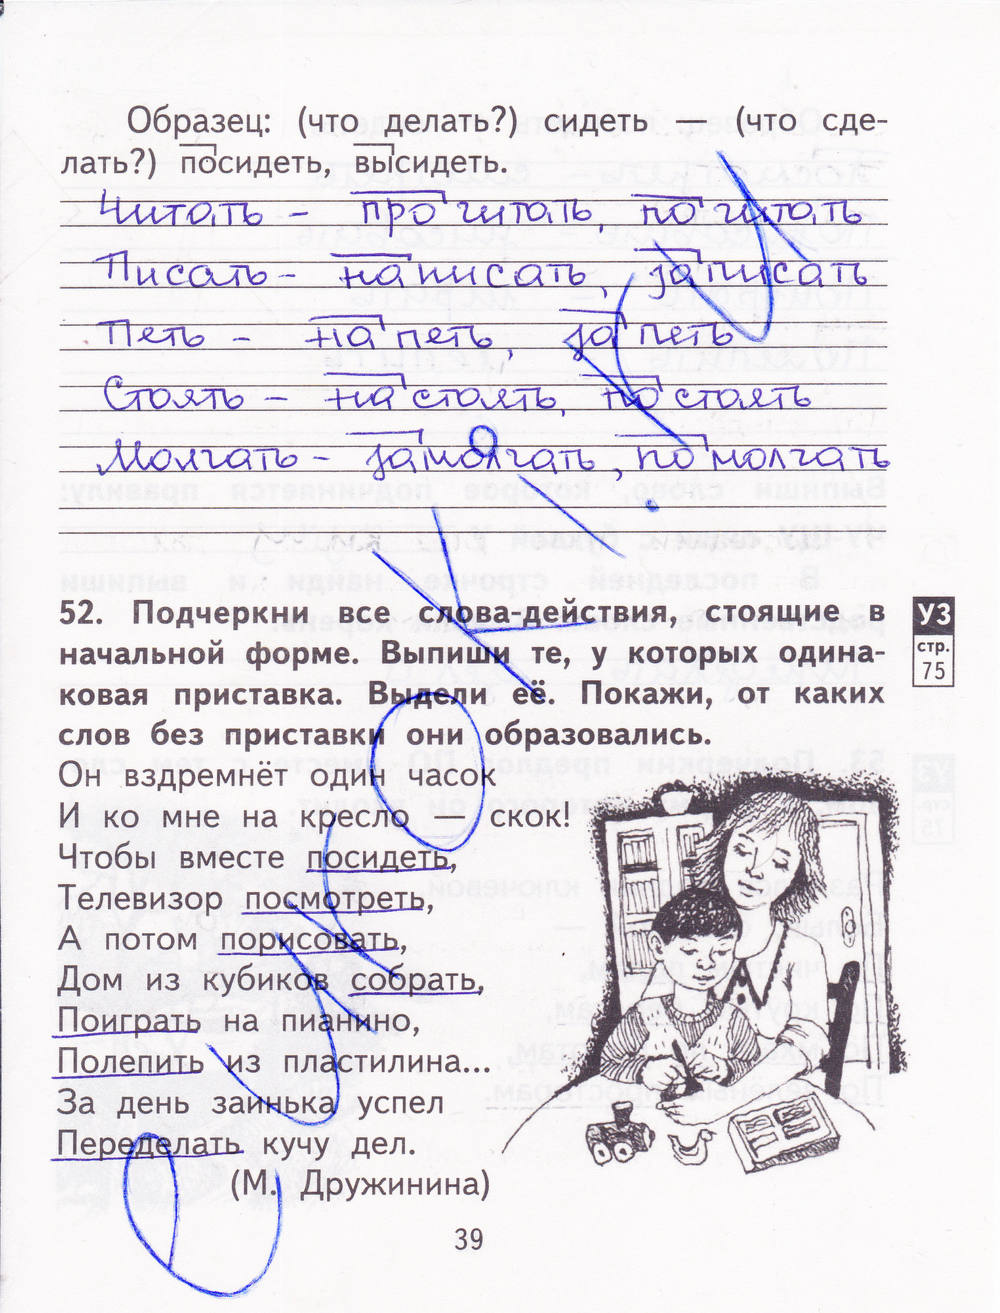 Образец: (что делать?) сидеть — (что сде-
лать?) посидеть, высидеть.
Читать – прочитать, почитать
Писать – написать, записать
Петь – напеть, запеть
Стоять – настоять, постоять
Молчать – замолчать, помолчать
52. Подчеркни все слова-действия, стоящие в
начальной форме. Выпиши те, у которых одина-
ковая приставка. Выдели её. Покажи, от каких
слов без приставки они образовались.
УЗ
стр.
75
Он вздремнёт один часок
И ко мне на кресло — скок!
Чтобы вместе посидеть,
Телевизор посмотреть,
А потом порисовать,
Дом из кубиков собрать,
Поиграть на пианино,
Полепить из пластилина...
За день заинька успел
Переделать кучу дел.
(М. Дружинина)
39